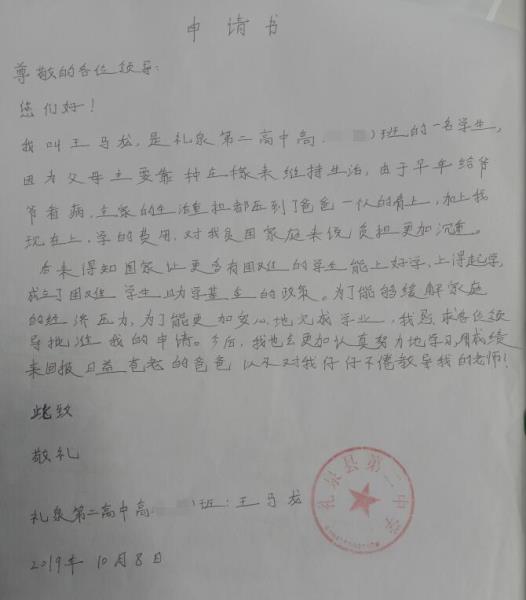 申请书
尊敬的各位领导:
您们好!
我叫王马龙,是礼泉第二高中高 )班的一名学生,
因为父母主要靠种庄稼来维持生活,由于早年给爷
爷看病,全家的生活重担都压到了爸爸一人的肩上,加上我
现在上学的费用,对我贫困家庭来说负担更加沉重。
后来得知国家让更多有困难的学生能上好学,上得起学,
成立了困难学生助学基金的政策。为了能够缓解家庭
的经济压力,为了能更加安心地完成学业,我恳求各位领
导批准我的申请。今后,我也会更加认真努力地学习,用成绩
来回报日益苍老的爸爸以及对我仔仔不倦教导我的老师!
此致
敬礼
礼泉第二高中高 )班:王马龙
2019年10月8日
礼泉县第二中学